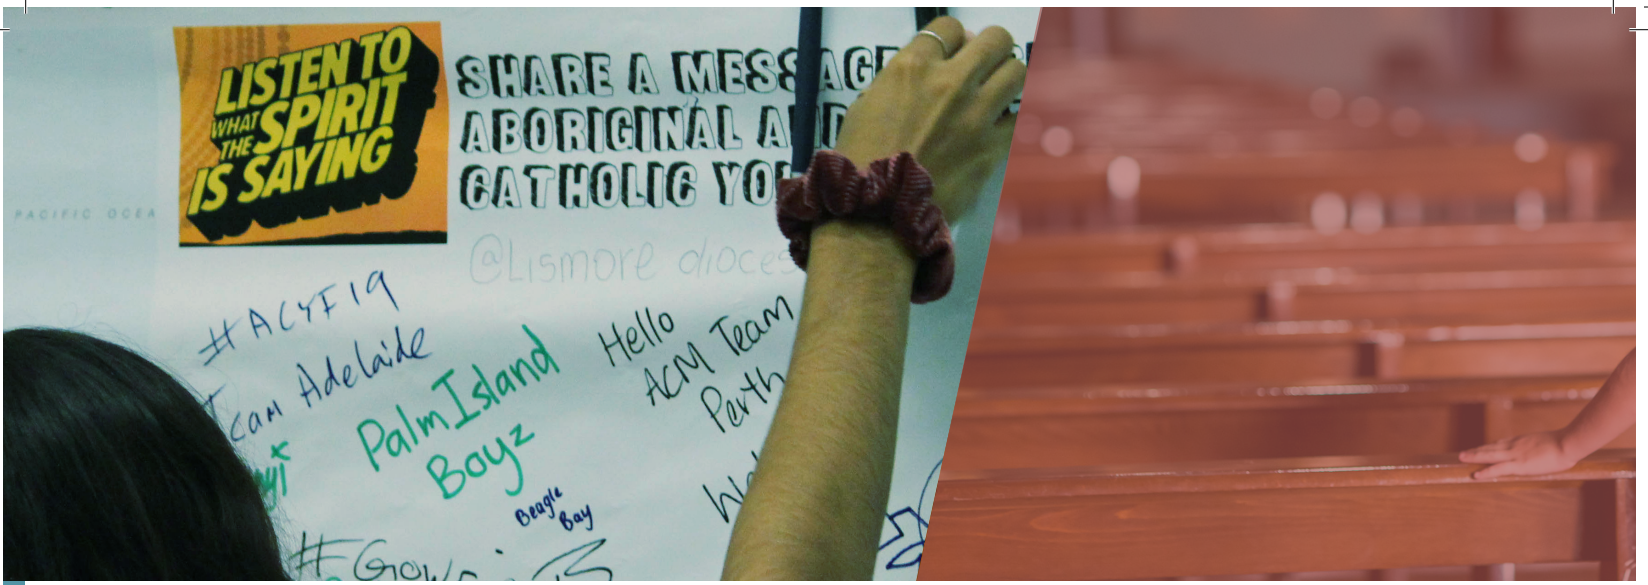 LISTEN TO
WHAT
THE SPIRIT
IS SAYING
SHARE A MESSAGE
ABORIGINAL AND
CATHOLIC YOU
PACIFIC OCEA
@Lismore dioces
#ACYF19
Team Adelaide
Palm Island
Boyz
Hello
ACM Team
Perth
Beagle
Bay